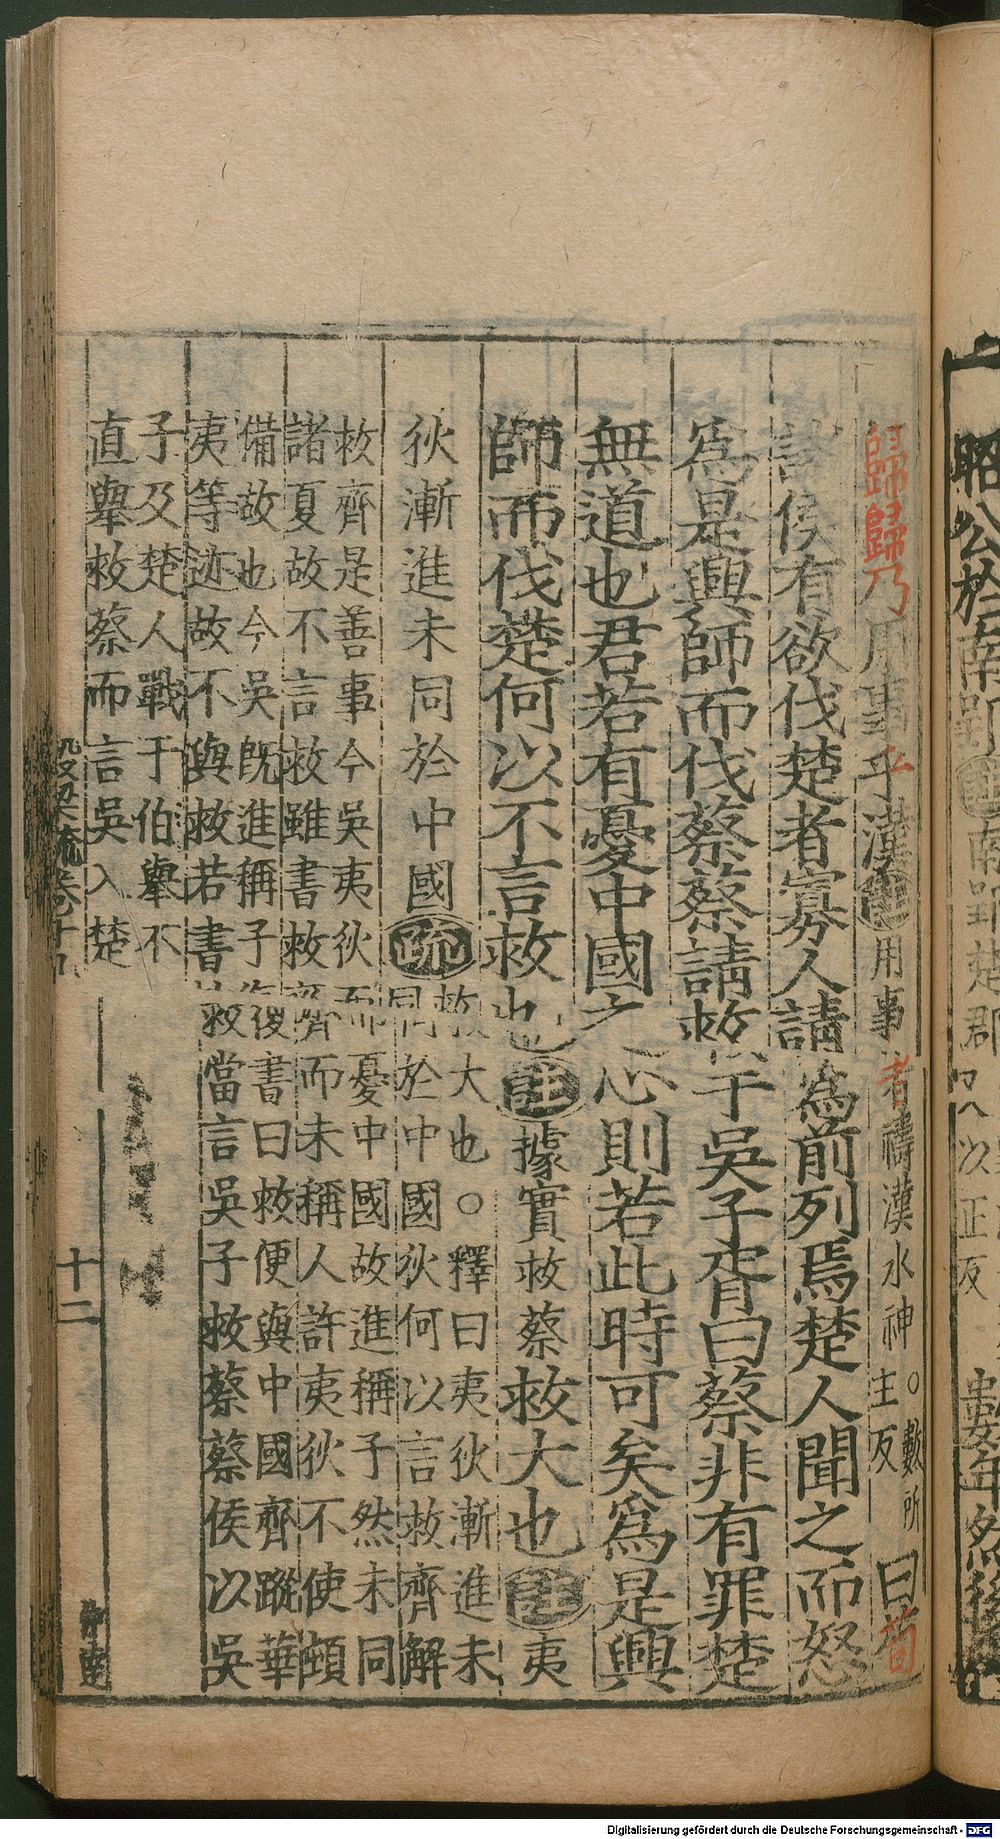 昭公於南郢註南郢楚郡
數年然後
歸歸乃用事乎漢註用事者禱漢水神○數所主反曰苟
諸侯有欲伐楚者寡人請為前列焉楚人聞之而怒
為是興師而伐蔡蔡請救于吳子胥曰蔡非有罪楚
無道也君若有憂中國之心則若此時可矣為是興
師而伐楚何以不言救也註據實救蔡救大也註夷
狄漸進未同於中國疏救大也○釋曰夷狄漸進未
同於中國狄何以言救齊解
救齊是善事今吳夷狄而憂中國故進稱子然未同
諸夏故不言救雖書救齊而未稱人許夷狄不使頓
備故也今吳既進稱子復書曰救便與中國齊蹤華
夷等迹故不與救若書救當言吳子救蔡蔡侯以吳
子及楚人戰于伯舉不
直舉救蔡而言吳入楚
十二
Digitalisierung gefördert durch die Deutsche Forschungsgemeinschaft - DFG